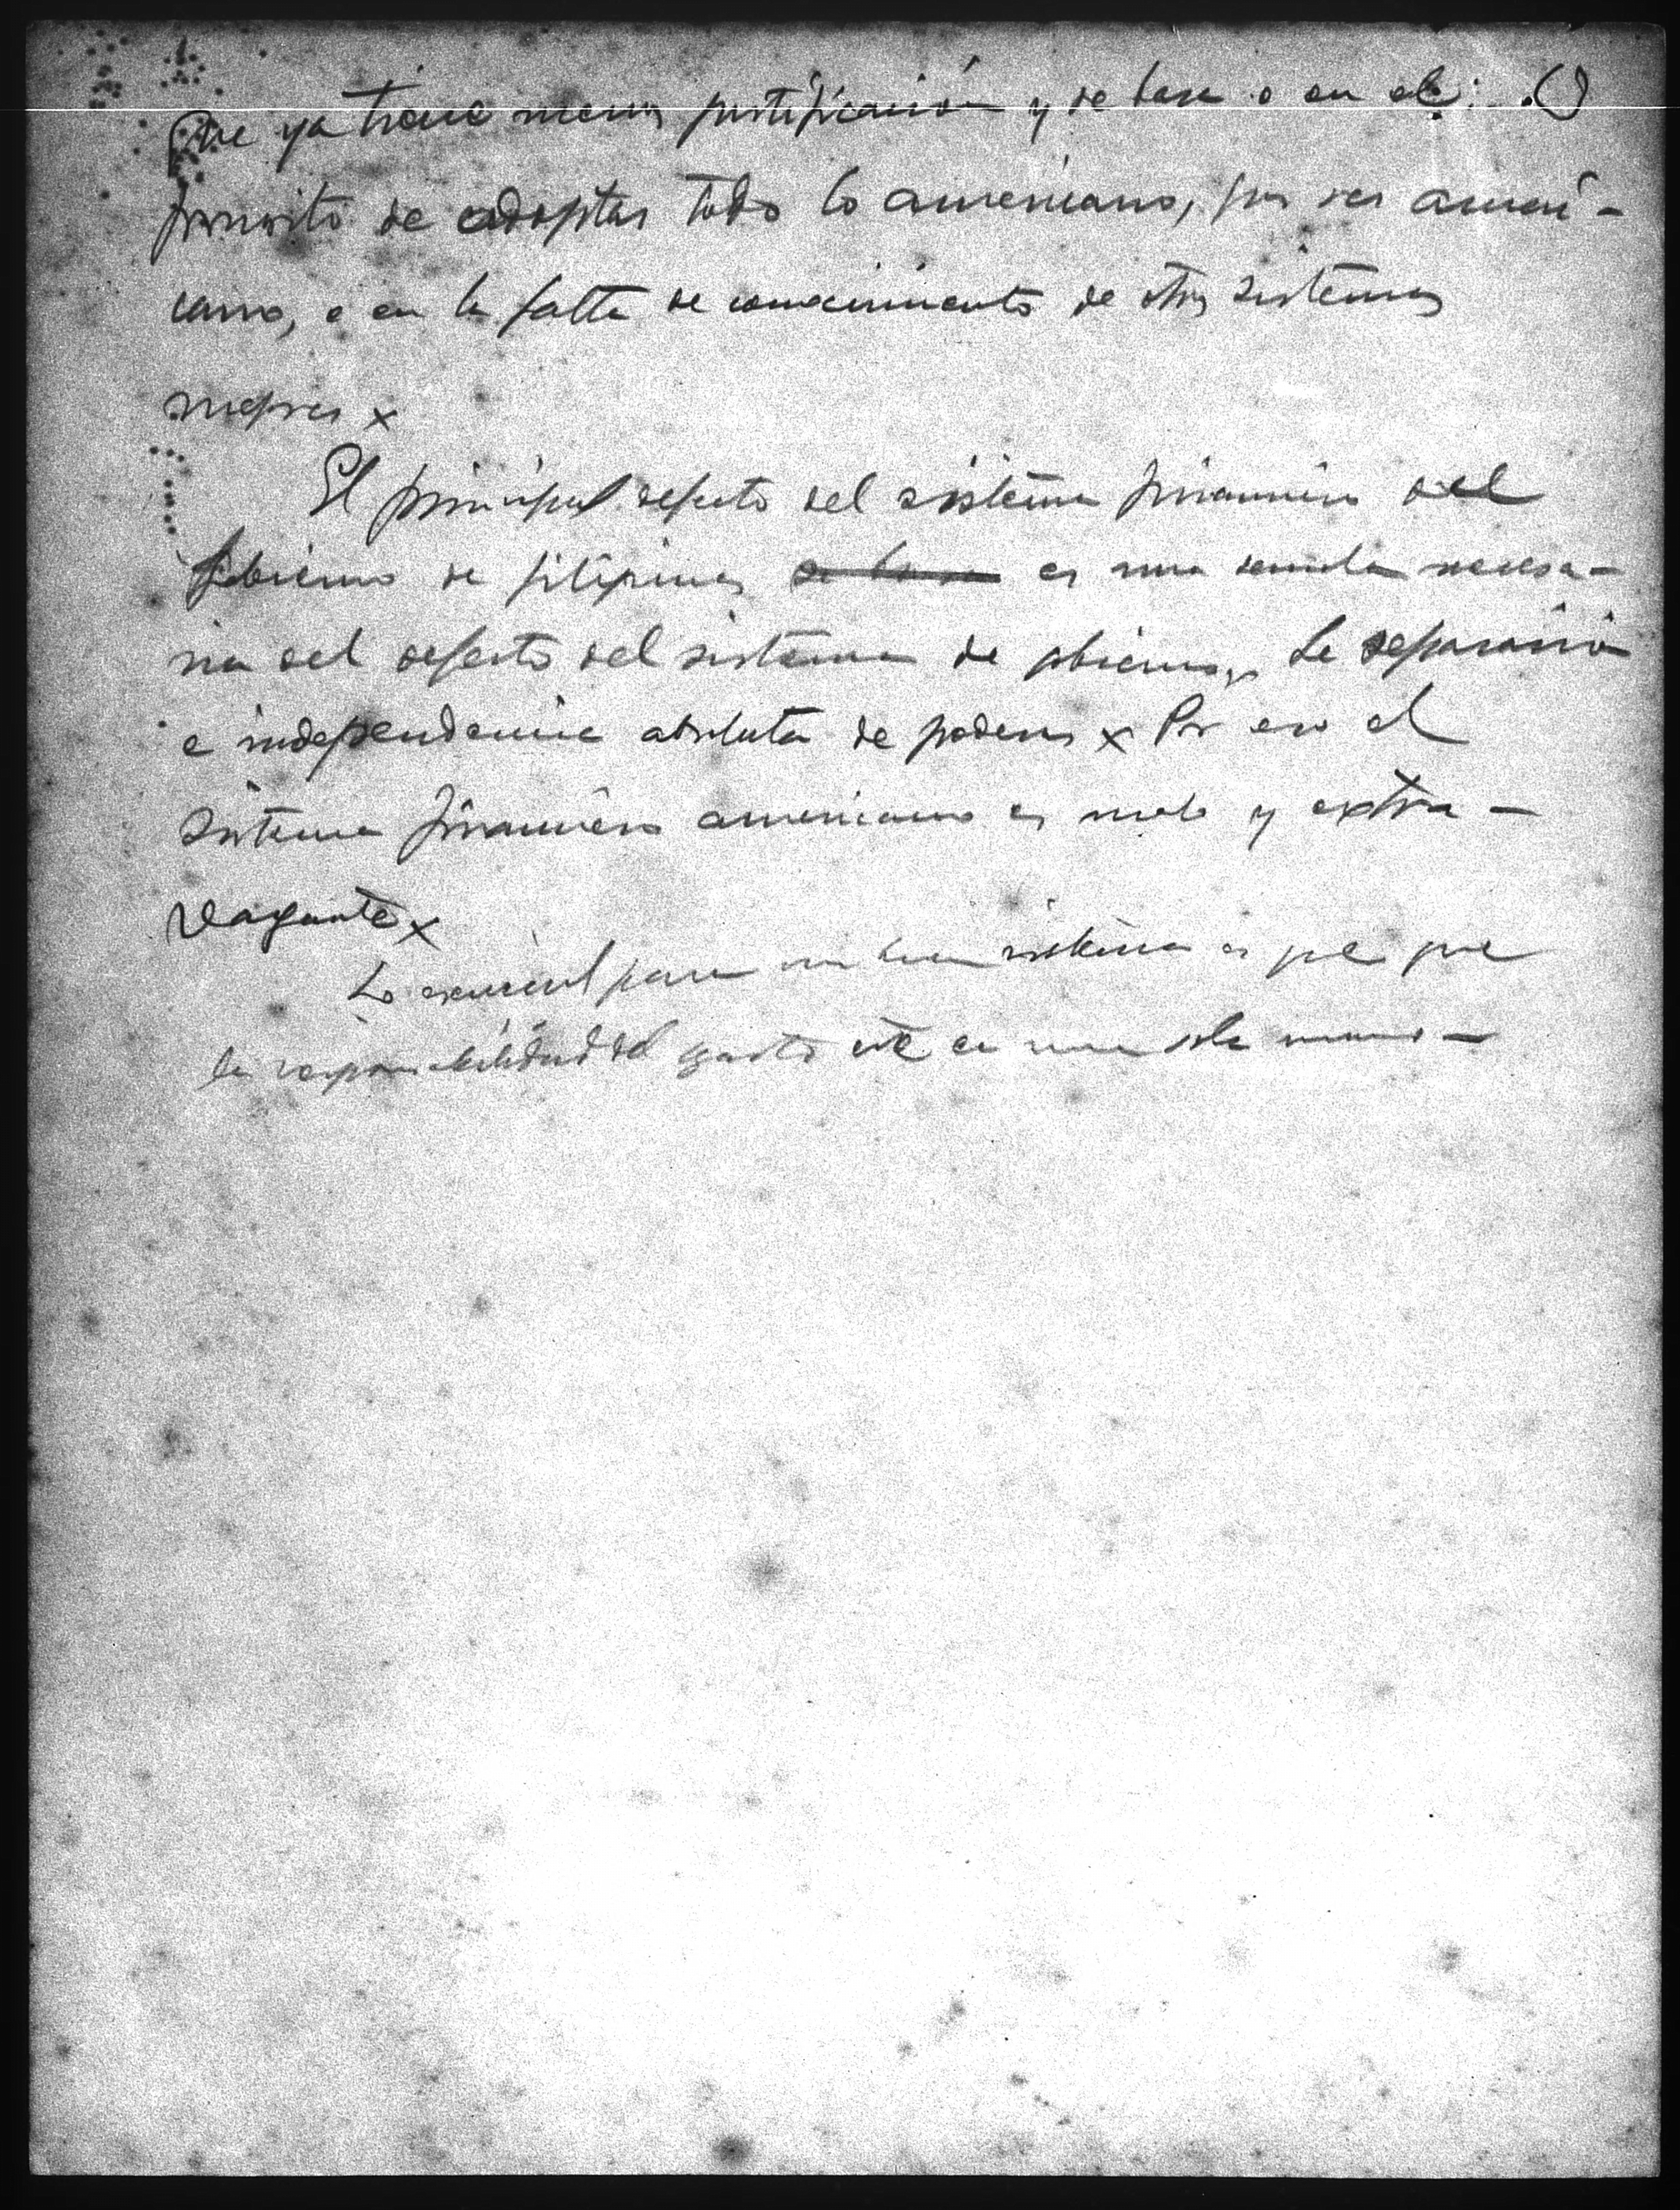 que ya tiene menos justificación y se basa o en el
prurito de adoptar todo lo americano, por ser ameri-
cano, o en la falta de conocimiento de otros sistemas
mejores x
El principal defecto del sistema financiero del
Gobierno de Filipinas es una secuela necesa-
ria del defecto del sistema de gobierno, la separación
e independencia absoluta de poderes x Por eso el
sistema financiero americano es malo y extra-
vagante x
Lo esencial para un buen sistema es que que
la responsabilidad del gasto esté en una sola mano -